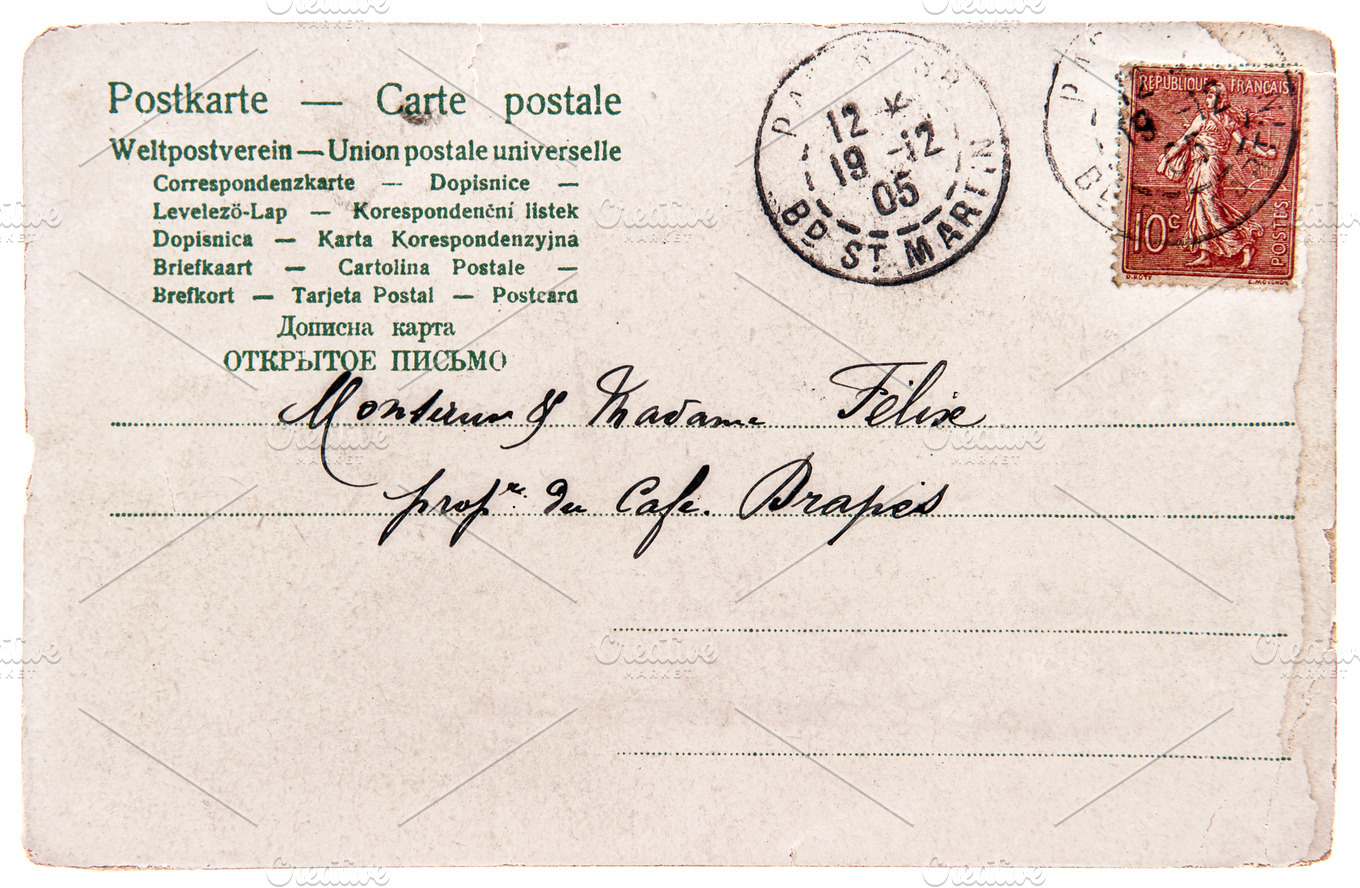 Postkarte — Carte postale
Weltpostverein — Union postale universelle
Correspondenzkarte — Dopisnice —
Levelező-Lap — Korespondenční listek
Dopisnica — Karta Korespondenzyjna
Briefkaart — Cartolina Postale —
Brefkort — Tarjeta Postal — Postcard
Дописна карта
ОТКРЫТОЕ ПИСЬМО
12 *
19 -12
05
BD ST. MARTIN
REPUBLIQUE FRANÇAISE
10c
POSTES
Monsieur & Madame Félix
propre. du Cafe.
Creative MARKET